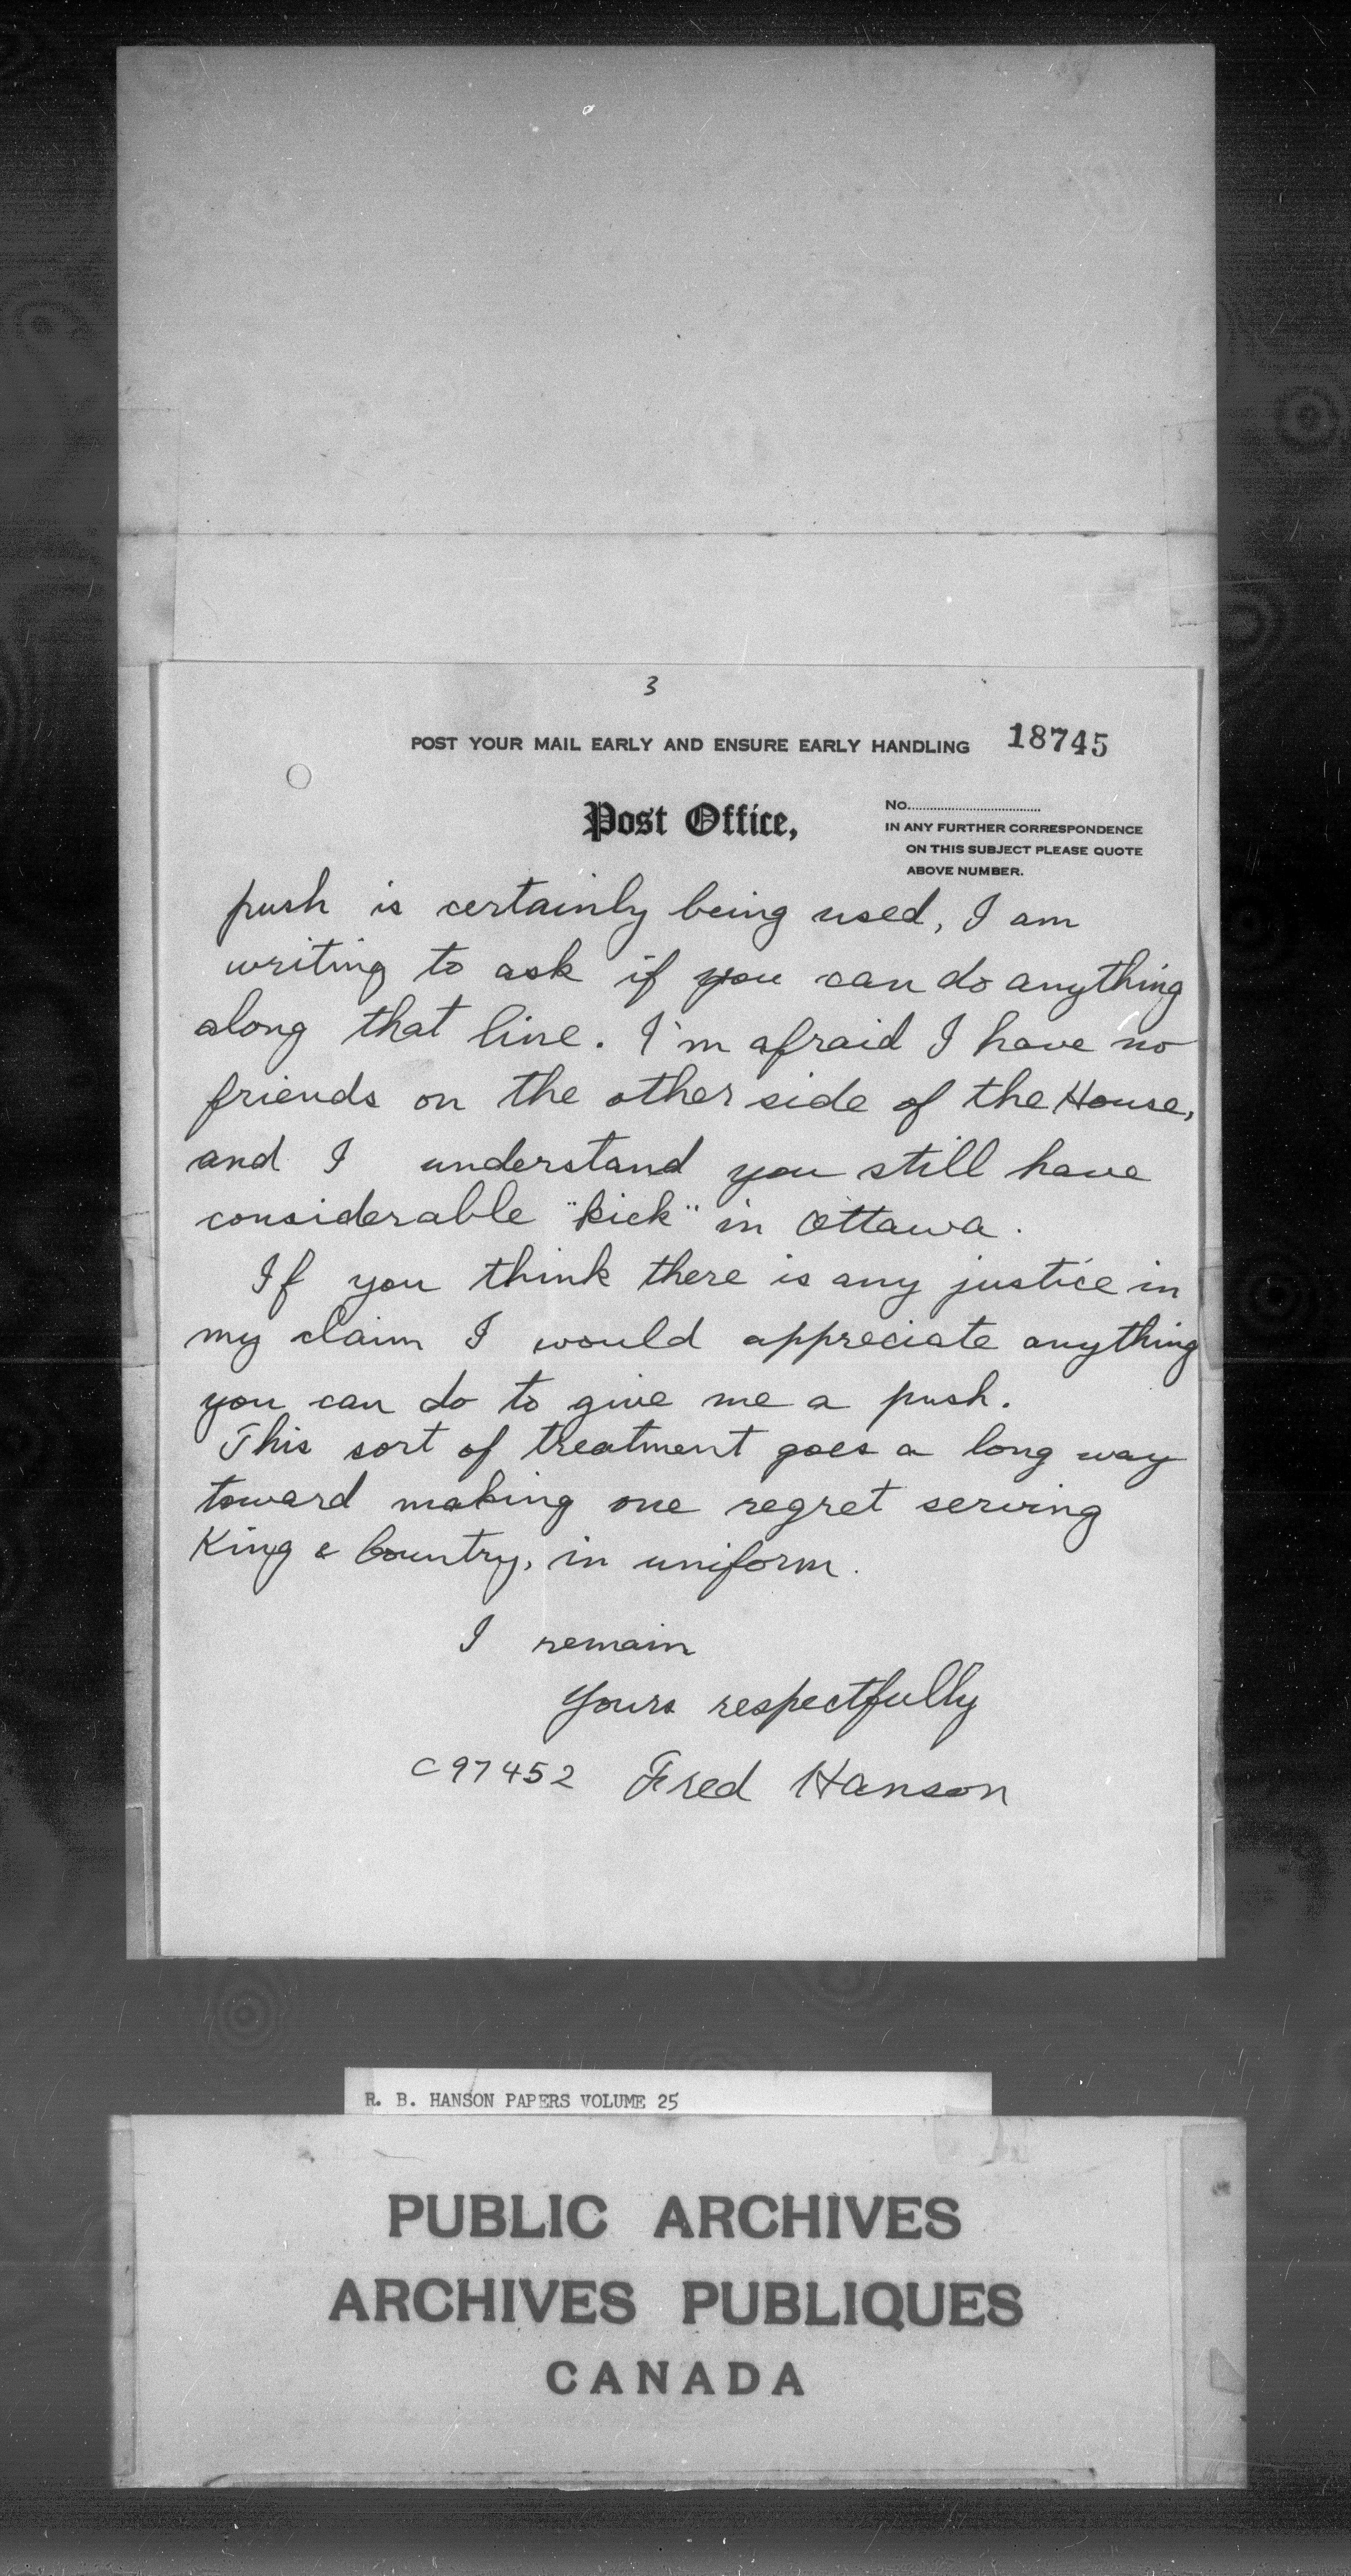 3
POST YOUR MAIL EARLY AND ENSURE EARLY HANDLING 18745
Post Office,
No.....................................
IN ANY FURTHER CORRESPONDENCE
ON THIS SUBJECT PLEASE QUOTE
ABOVE NUMBER.
push is certainly being used, I am
writing to ask if you can do anything
along that line. I'm afraid I have no
friends on the other side of the House,
and I understand you still have
considerable "kick" in Ottawa.
If you think there is any justice in
my claim I would appreciate anything
you can do to give me a push.
This sort of treatment goes a long way
toward making one regret serving
King & Country, in uniform.
I remain
Yours respectfully
C97452 Fred Hanson
R. B. HANSON PAPERS VOLUME 25
PUBLIC ARCHIVES
ARCHIVES PUBLIQUES
CANADA